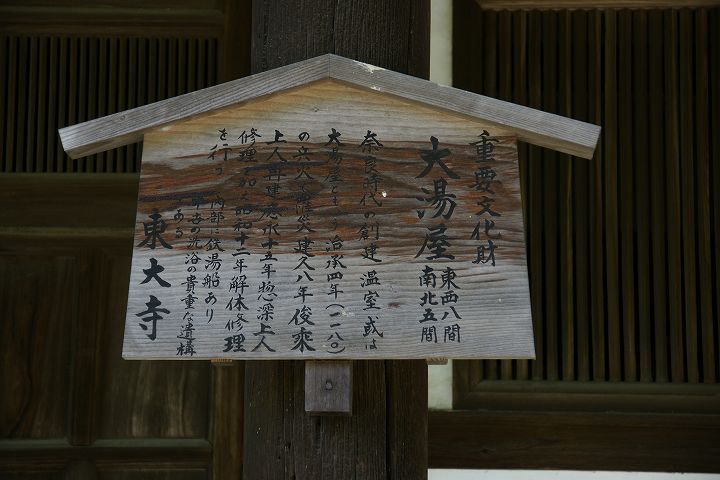 重要文化財
大湯屋
東西八間
南北五間
奈良時代の創建 温室或は
大湯屋ともいう 治承四年(一一八〇)
の兵火で罹災 建久八年俊乗
上人再建 應永十五年惣深上人
修理 昭和十二年解体修理
を行う 内部に鉄湯船あり
中古の洗浴の貴重な遺構
である
東大寺